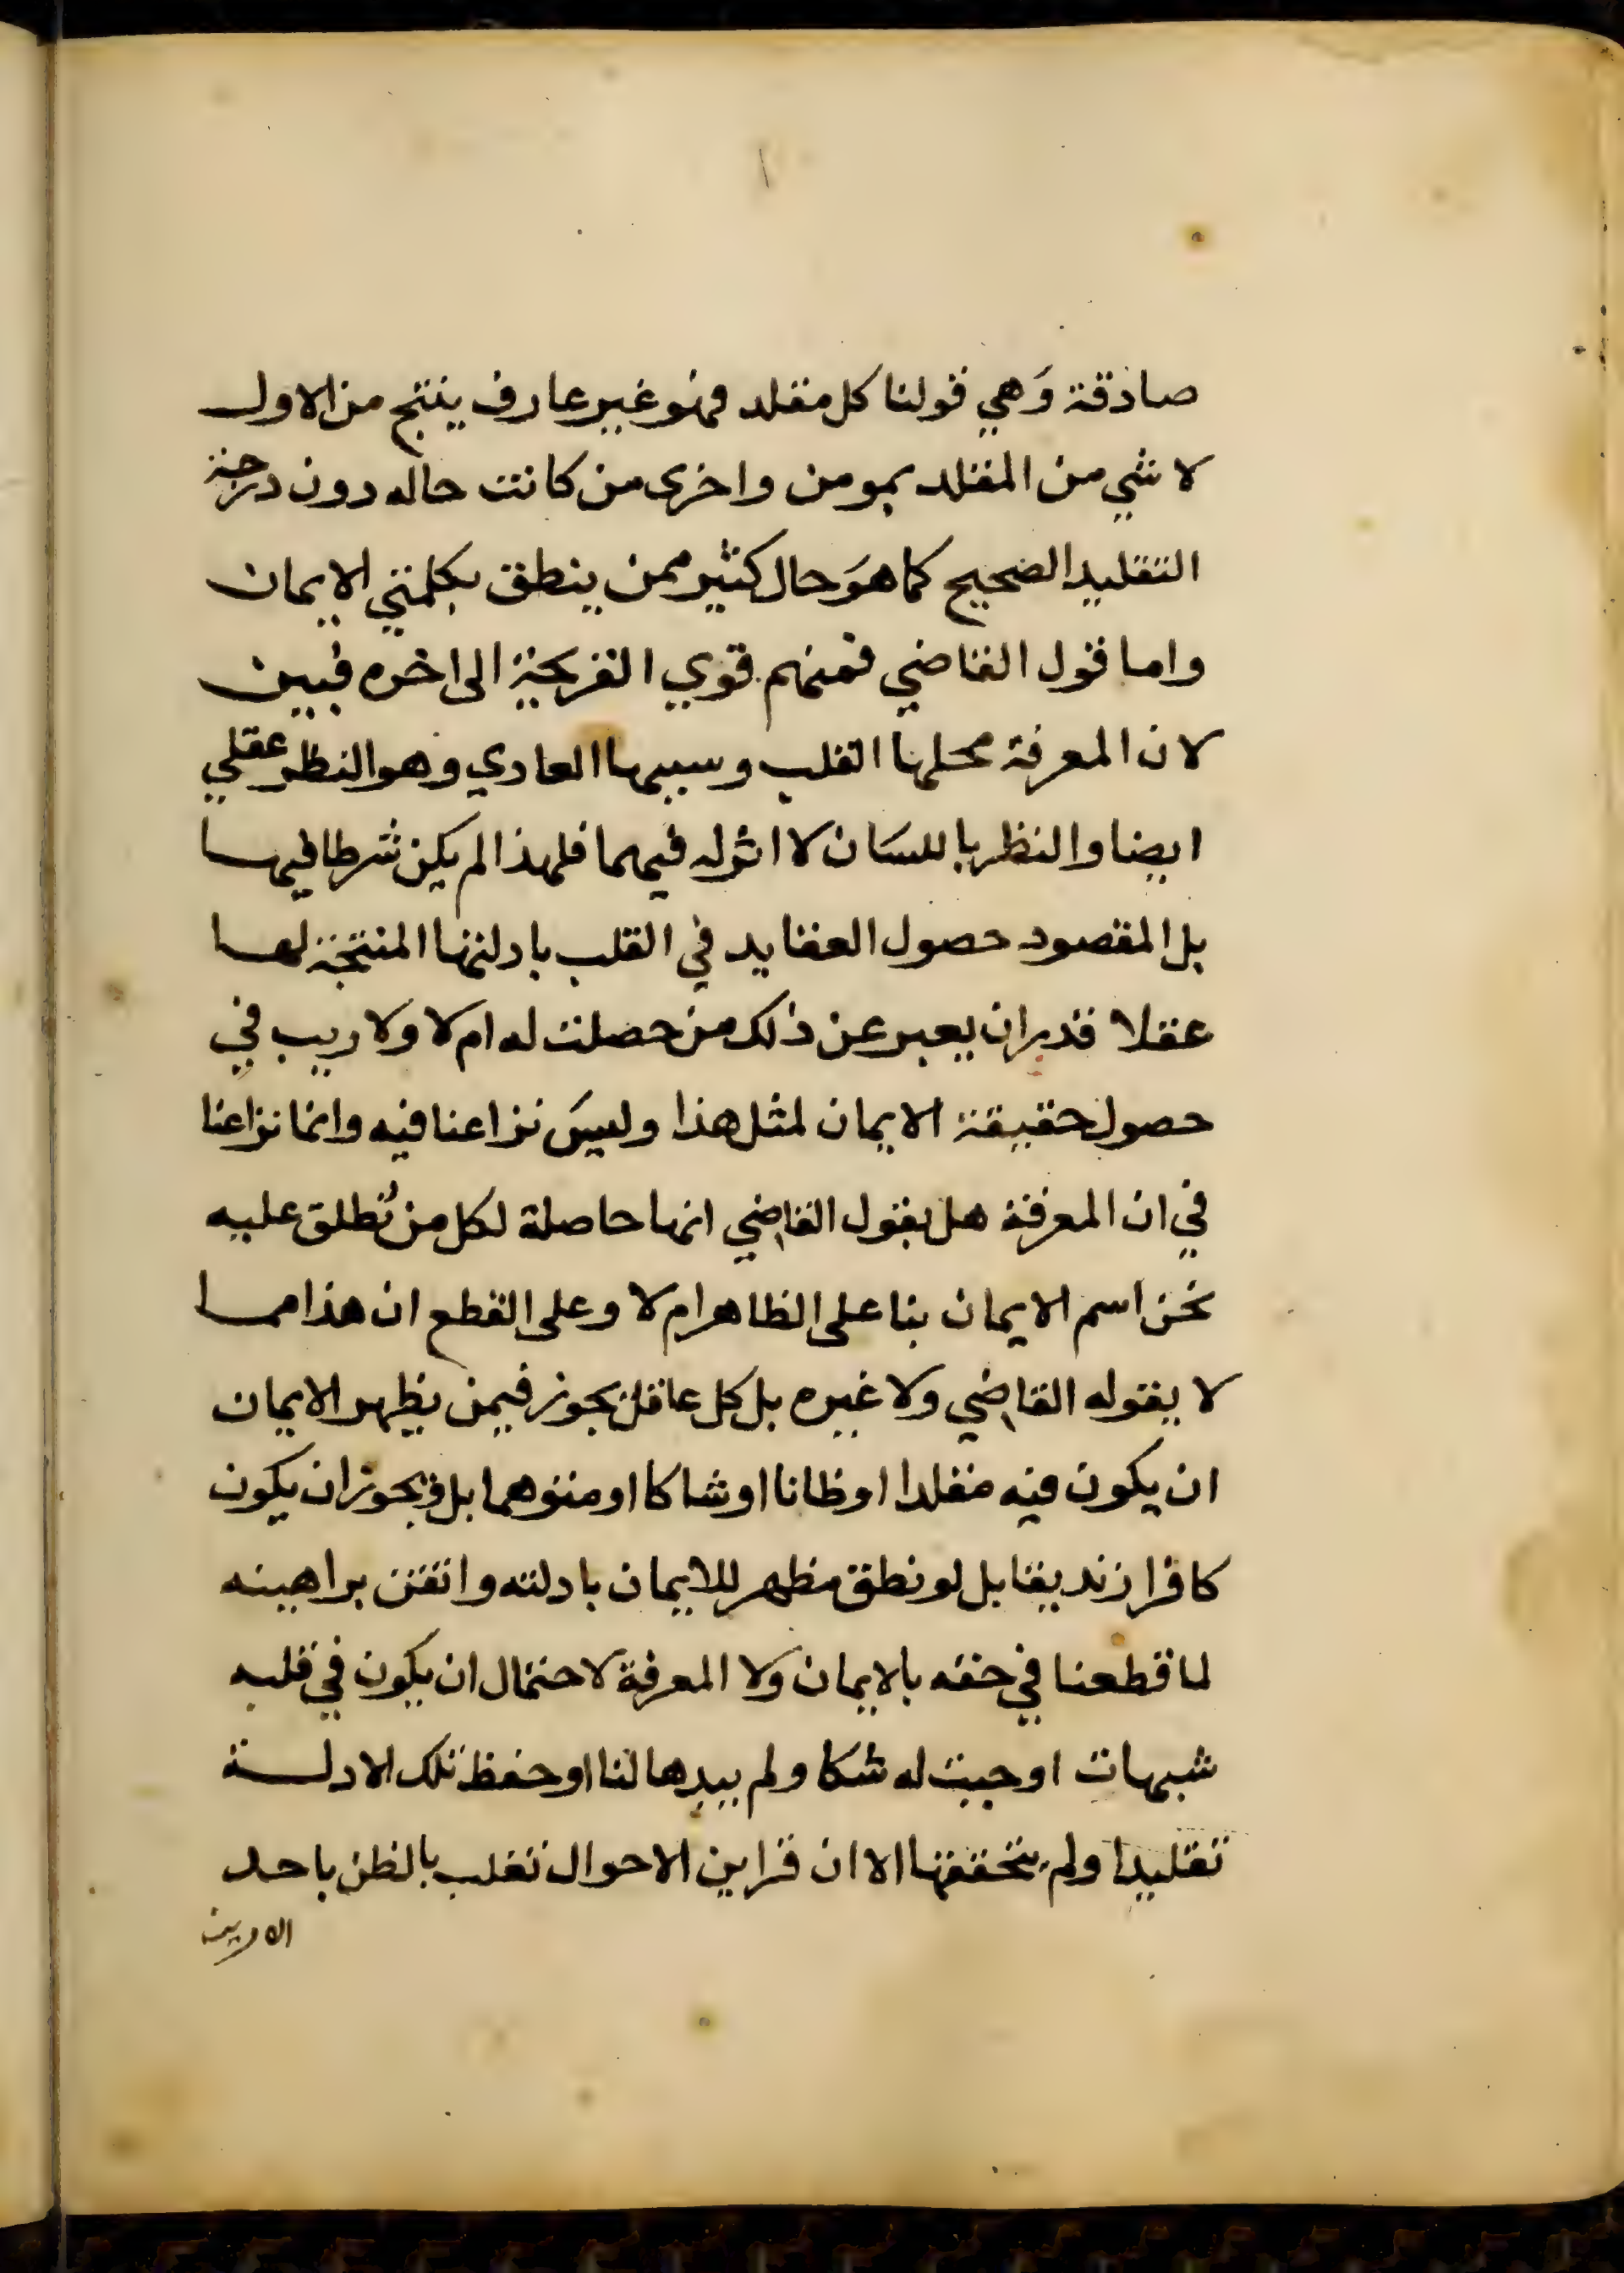 صادقة وَهي قولنا كل مقلد فهو غير عارف ينتج من الاول
لا شي من المقلد بمومن واخرى من كانت حاله دون درجة
التقليد الصحيح كما هوَ حال كثير ممن ينطق بكلمتي الايمان
واما قول القاضي فمنهم قوي القريحة الى اخره فبين
لان المعرفة محلها القلب وسببها العادي وهو النظر عقلي
ايضا والنظر باللسان لا اثر له فيهما فلهذا لم يكن شرطا فيها
بل المقصود حصول العقايد في القلب بادلتها المنتجة لها
عقلا قدر ان يعبر عن ذلك من حصلت له ام لا ولا ريب في
حصول حقيقة الايمان لمثل هذا وليسَ نزاعنا فيه وانما نزاعنا
في ان المعرفة هل يقول القاضي انها حاصلة لكل من نُطلق عليه
نحن اسم الايمان بنا على الظاهر ام لا وعلى القطع ان هذا مما
لا يقوله القاضي ولا غيره بل كل عاقل يجوز فيمن يظهر الايمان
ان يكون فيه مقلدا او ظانا او شاكا او متوهما بل ويجوز ان يكون
كافرا زنديقا بل لو نطق مظهر للايمان بادلته واتقن براهينه
لما قطعنا في حقه بالايمان ولا المعرفة لاحتمال ان يكون في قلبه
شبهات اوجبت له شكا ولم يبدها لنا او حفظ تلك الادلة
تقليدا ولم يتحققها الا ان قراين الاحوال تغلب بالظن باحد
الامرين